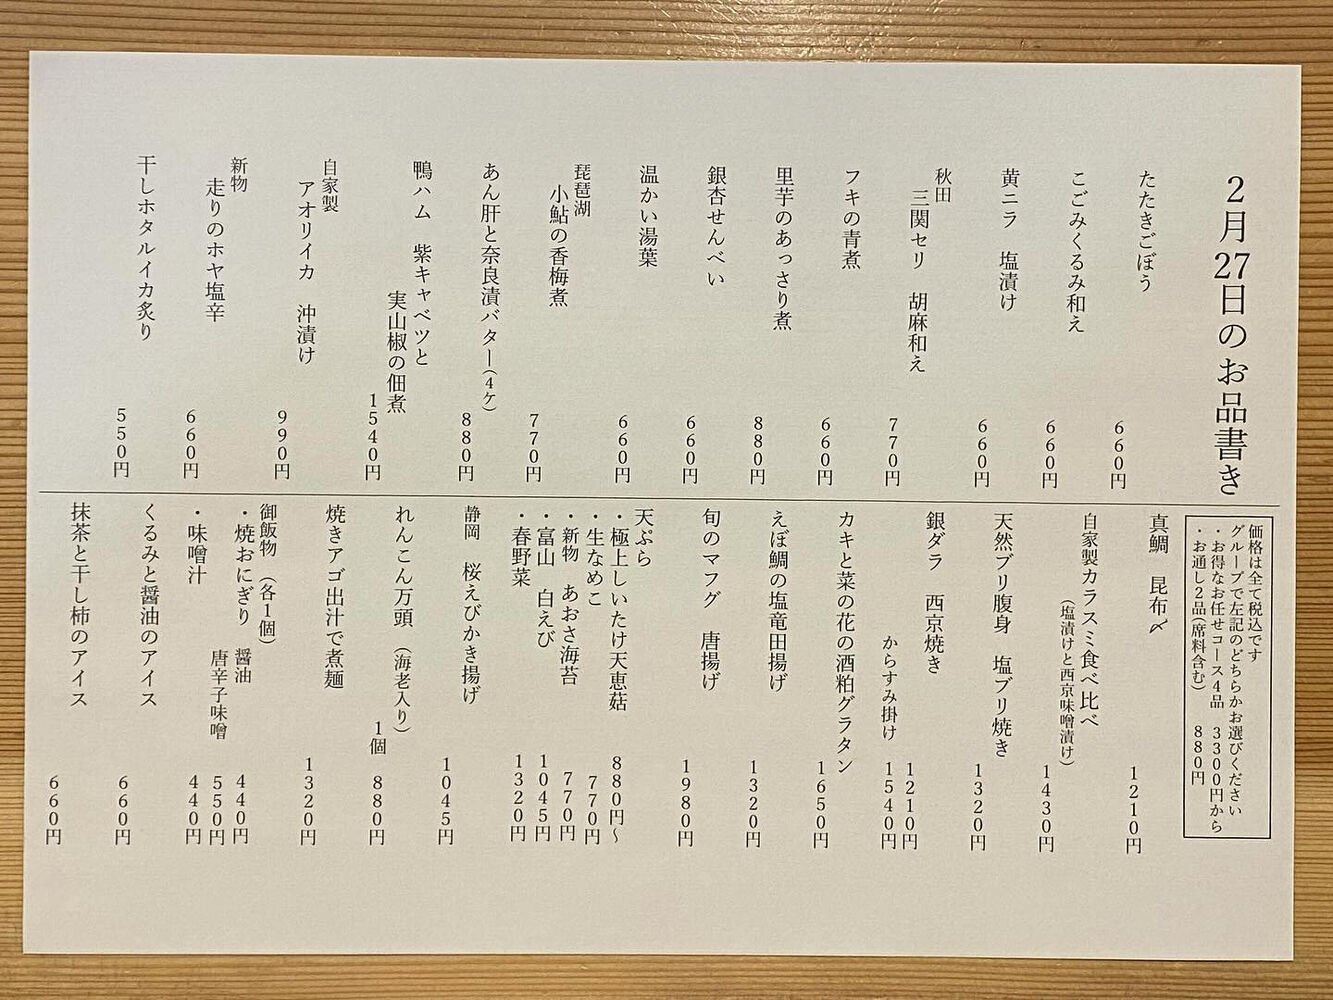 2月27日のお品書き
たたきごぼう 660円
こごみくるみ和え 660円
黄ニラ 塩漬け 660円
秋田
三関セリ 胡麻和え 770円
フキの青煮 660円
里芋のあっさり煮 880円
銀杏せんべい 660円
温かい湯葉 660円
琵琶湖
小鮎の香梅煮 770円
あん肝と奈良漬バター(4ケ) 880円
鴨ハム 紫キャベツと
実山椒の佃煮 1540円
自家製
アオリイカ 沖漬け 990円
新物
走りのホヤ塩辛 660円
干しホタルイカ炙り 550円
価格は全て税込です
グループで左記のどちらかお選びください
・お得なお任せコース4品 3300円から
・お通し2品(席料含む) 880円
真鯛 昆布〆 1210円
自家製カラスミ食べ比べ
(塩漬けと西京味噌漬け) 1430円
天然ブリ腹身 塩ブリ焼き 1320円
銀ダラ 西京焼き 1210円
からすみ掛け 1540円
カキと菜の花の酒粕グラタン 1650円
えぼ鯛の塩竜田揚げ 1320円
旬のマフグ 唐揚げ 1980円
天ぷら
・極上しいたけ天恵菇 880円~
・生なめこ 770円
・新物 あおさ海苔 770円
・富山 白えび 1045円
・春野菜 1320円
静岡 桜えびかき揚げ 1045円
れんこん万頭 (海老入り) 1個 880円
焼きアゴ出汁で煮麺 1320円
御飯物 (各1個)
・焼おにぎり 醤油 440円
唐辛子味噌 550円
・味噌汁 440円
くるみと醤油のアイス 660円
抹茶と干し柿のアイス 660円